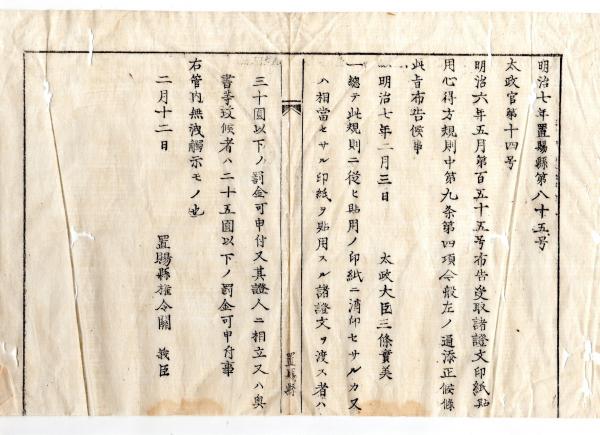 明治七年置賜縣第八十五号
太政官第十四号
明治六年五月第百五十五号布告受取諸證文印紙貼
用心得方規則中第九条第四項今般左ノ通添正候條
此旨布告候事
明治七年二月三日　太政大臣三條實美
一總テ此規則ニ從ヒ貼用ノ印紙ニ消印セサルカ又
ハ相當セサル印紙ヲ貼用スル諸證文ヲ渡ス者ハ
置賜縣
三十圓以下ノ罰金可申付又其證人ニ相立又ハ奥
書等致候者ハ二十五圓以下ノ罰金可申付事
右管内無洩觸示モノ也
二月十二日　置賜縣權令關　義臣